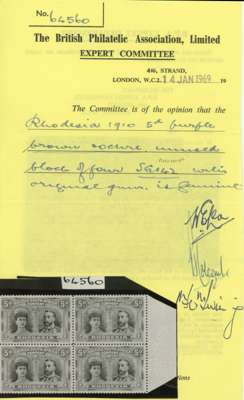 No. 64560
The British Philatelic Association, Limited
EXPERT COMMITTEE
446, STRAND,
LONDON, W.C.2. 14 JAN 1969 19
The Committee is of the opinion that the
Rhodesia 1910 5d purple
brown ochre. unused
block of four with
original gum. is genuine
64560
RHODESIA RHODESIA
RHODESIA RHODESIA